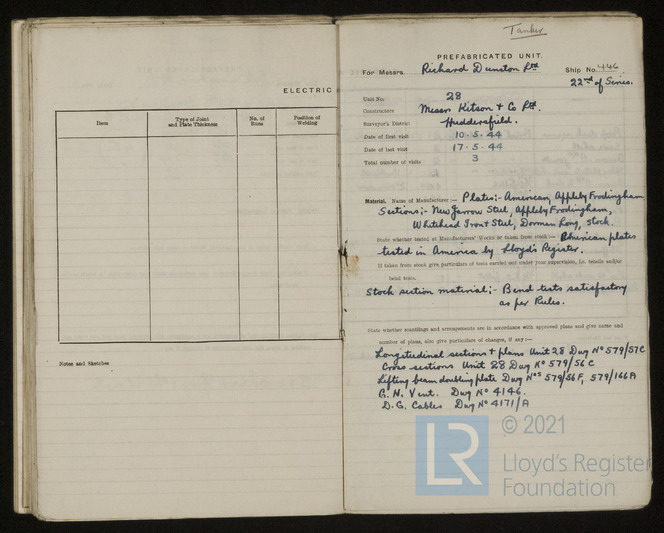 ELECTRIC
Item
Type of Joint and Plate Thickness
No. of Runs
Position of Welding
Notes and Sketches
Tanker
PREFABRICATED UNIT.
For Messrs. Richard Dunston Ltd Ship No. 446
22nd of Series.
Unit No. 28
Constructors Messrs Kitson & Co Ltd.
Surveyor's District Huddersfield.
Date of first visit 10.5.44
Date of last visit 17.5.44
Total number of visits 3
Material. Name of Manufacturer:— Plates:- American, Appleby Frodingham
Sections:- New Jarrow Steel, Appleby Frodingham,
Whitehead Iron & Steel, Dorman Long, Stock.
State whether tested at Manufacturers' Works or taken from stock:— American plates
tested in America by Lloyd's Register.
If taken from stock give particulars of tests carried out under your supervision, i.e. tensile and/or
bend tests.
Stock section material:- Bend tests satisfactory
as per Rules.
State whether scantlings and arrangements are in accordance with approved plans and give name and
number of plans, also give particulars of changes, if any:—
Longitudinal sections & plans Unit 28 Dwg No 579/57C
Cross sections Unit 28 Dwg No 579/56C
Lifting beam doubling plate Dwg Nos 579/56F, 579/166A
G. N. Vent. Dwg No 4146.
D. G. Cables Dwg No 4171/A
LR
© 2021
Lloyd's Register
Foundation